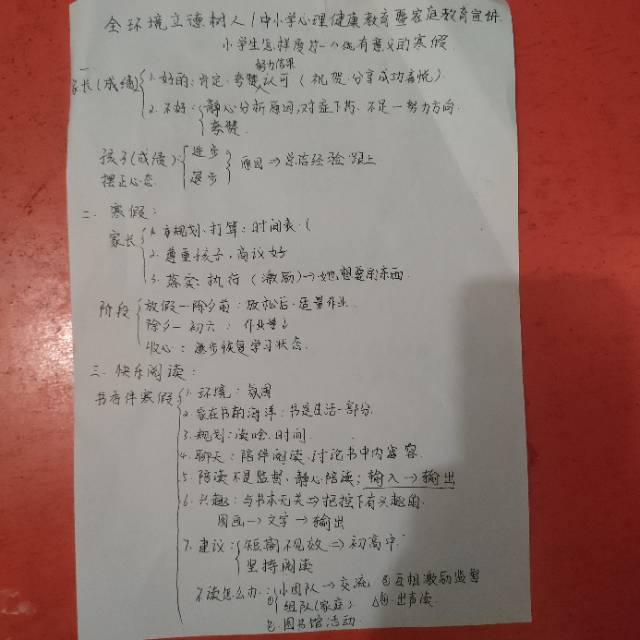 全环境立德树人/中小学心理健康教育暨家庭教育宣讲
小学生怎样度过一个既有意义的寒假.
努力结果
一.
家长(成绩) 1.好的:肯定、夸赞、认可(祝贺、分享成功喜悦).
2.不好:静心分析原因,对症下药.不足—努力方向.
夸赞
孩子(成绩) 进步 原因⇒总结经验
摆正心态 退步
二.寒假:
家长 1.有规划、打算:时间表.(
2.尊重孩子,商议好
3.落实:执行(激励)→她想要的东西
阶段 放假—除夕前:放松后.适量作业.
除夕—初六:作业
收心:逐步恢复学习状态.
三.快乐阅读:
书香伴寒假 1.环境:氛围
2.家在书的海洋:书是生活一部分.
3.规划:读啥.时间.
4.聊天:陪伴阅读.讨论书中内容
5.陪读不是监督、静心陪读;输入→输出
6.兴趣:与书本无关⇒把控下有兴趣的.
图画→文字→输出
7.建议:短期不见效⇒初高中
坚持阅读
不读怎么办:①小团队→交流 ③互相激励监督
组队(家庭) ④.出声读.
②图书馆活动.